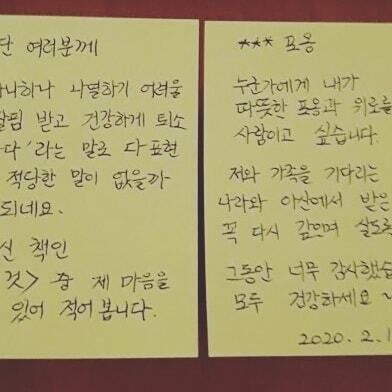 단 여러분께
하나하나 나열하기 어려울
보살핌 받고 건강하게 퇴소
다'라는 말로 다 표현
적당한 말이 없을까
되네요.
신 책인
것> 중 제 마음을
있어 적어 봅니다.
*** 포옹
누군가에게 내가
따뜻한 포옹과 위로를
사람이고 싶습니다.
저와 가족을 기다리는
나라와 아산에서 받은
꼭 다시 갚으며 살도록
그동안 너무 감사했습
모두 건강하세요
2020. 2. 1